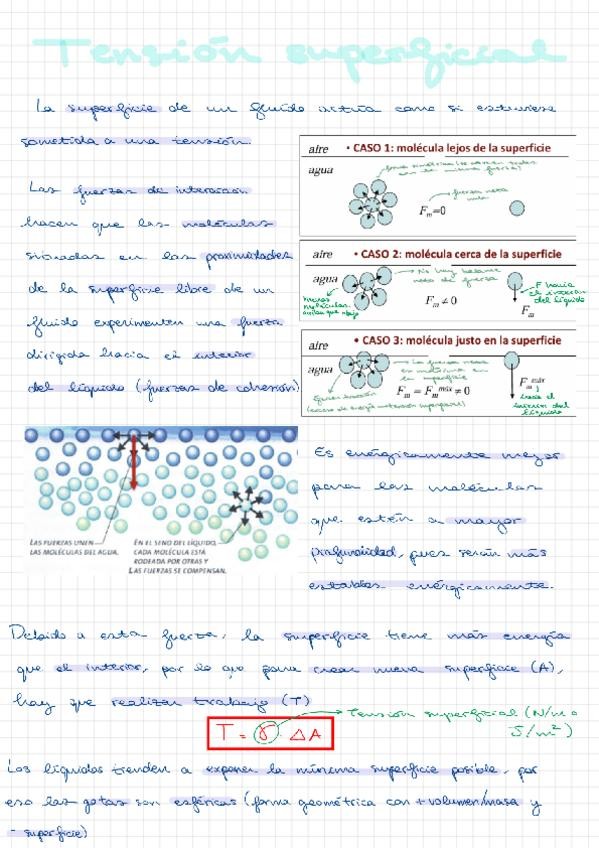 Tensión superficial
La superficie de un fluido actúa como si estuviese
sometida a una tensión.
Las fuerzas de interacción
hacen que las moléculas
situadas en las proximidades
de la superficie libre de un
fluido experimenten una fuerza
dirigida hacia el interior
del líquido (fuerzas de cohesión)
aire • CASO 1: molécula lejos de la superficie
agua
fuerza neta
nula
Fm=0
aire • CASO 2: molécula cerca de la superficie
agua
No hay balance
neto de fuerza
menos
moléculas
arriba que abajo
Fm ≠ 0
F hacia
el interior
del líquido
Fm
aire • CASO 3: molécula justo en la superficie
agua
La fuerza neta
es máxima en
la superficie
Fm = Fm máx ≠ 0
Fm máx
hacia el
interior del
líquido
LAS FUERZAS UNEN
LAS MOLÉCULAS DEL AGUA.
EN EL SENO DEL LÍQUIDO,
CADA MOLÉCULA ESTÁ
RODEADA POR OTRAS Y
LAS FUERZAS SE COMPENSAN.
Es energicamente mejor
para las moléculas
que estén a mayor
profundidad, pues serán más
estables enérgicamente.
Debido a esta fuerza, la superficie tiene más energía
que el interior, por lo que para crear nueva superficie (A),
hay que realizar trabajo (T)
T = γ · ΔA
tensión superficial (N/m o
J/m²)
Los líquidos tienden a exponer la mínima superficie posible, por
eso las gotas son esféricas (forma geométrica con + volumen/masa y
- superficie)